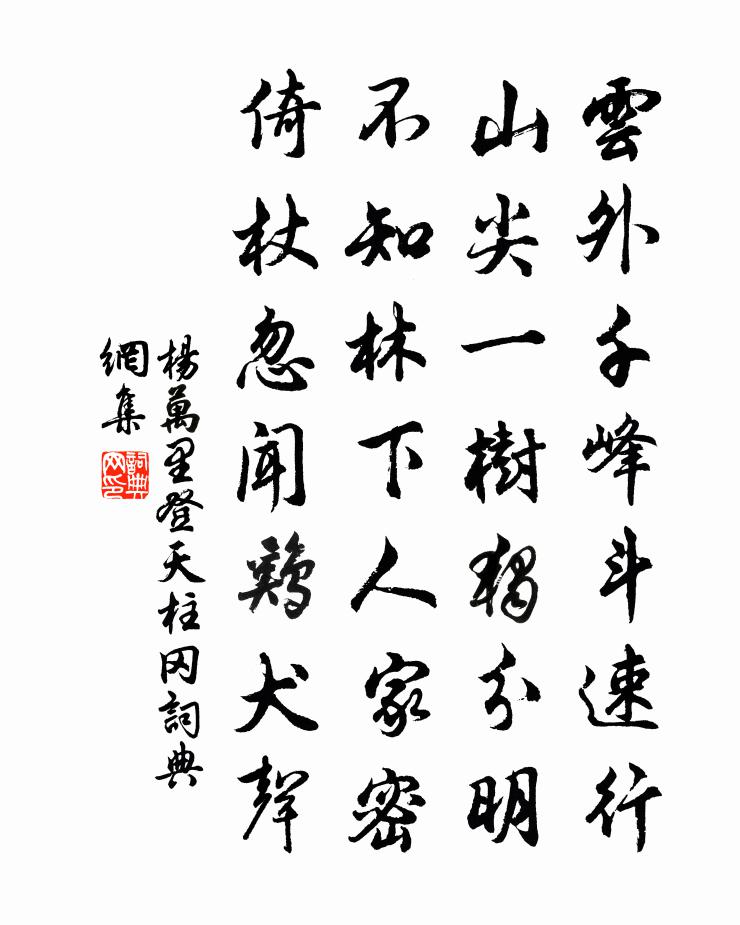 雲外千峰斗速行
山尖一樹獨分明
不知林下人家密
倚杖忽聞鷄犬聲
楊萬里登天柱冈詞典
網集
詞典网印